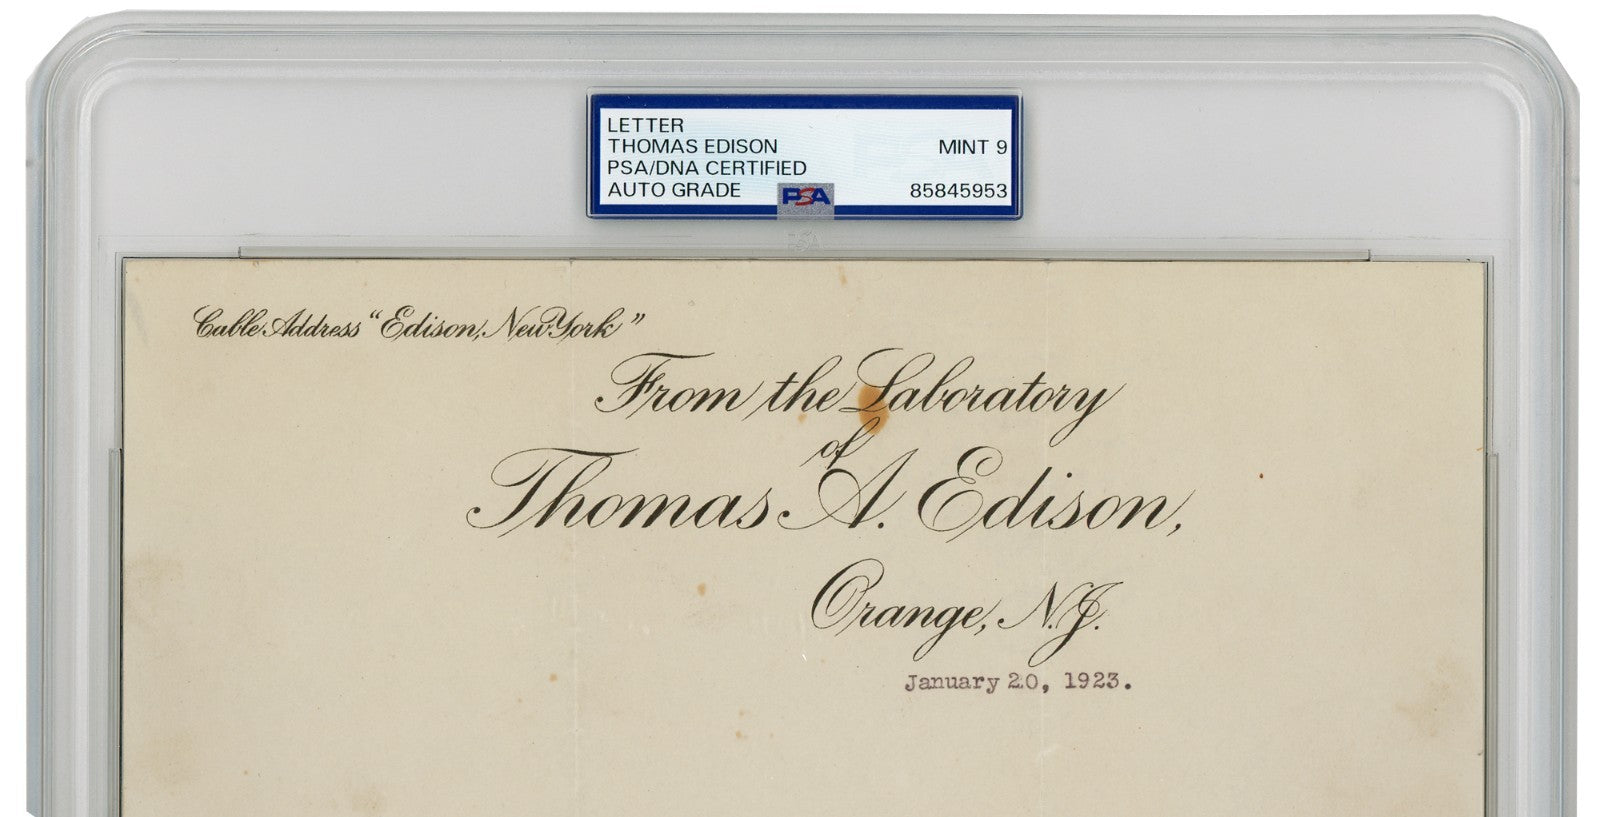 LETTER
THOMAS EDISON MINT 9
PSA/DNA CERTIFIED
AUTO GRADE PSA 85845953
PSA
Cable Address "Edison, New York"
From the Laboratory
of
Thomas A. Edison,
Orange, N.J.
January 20, 1923.